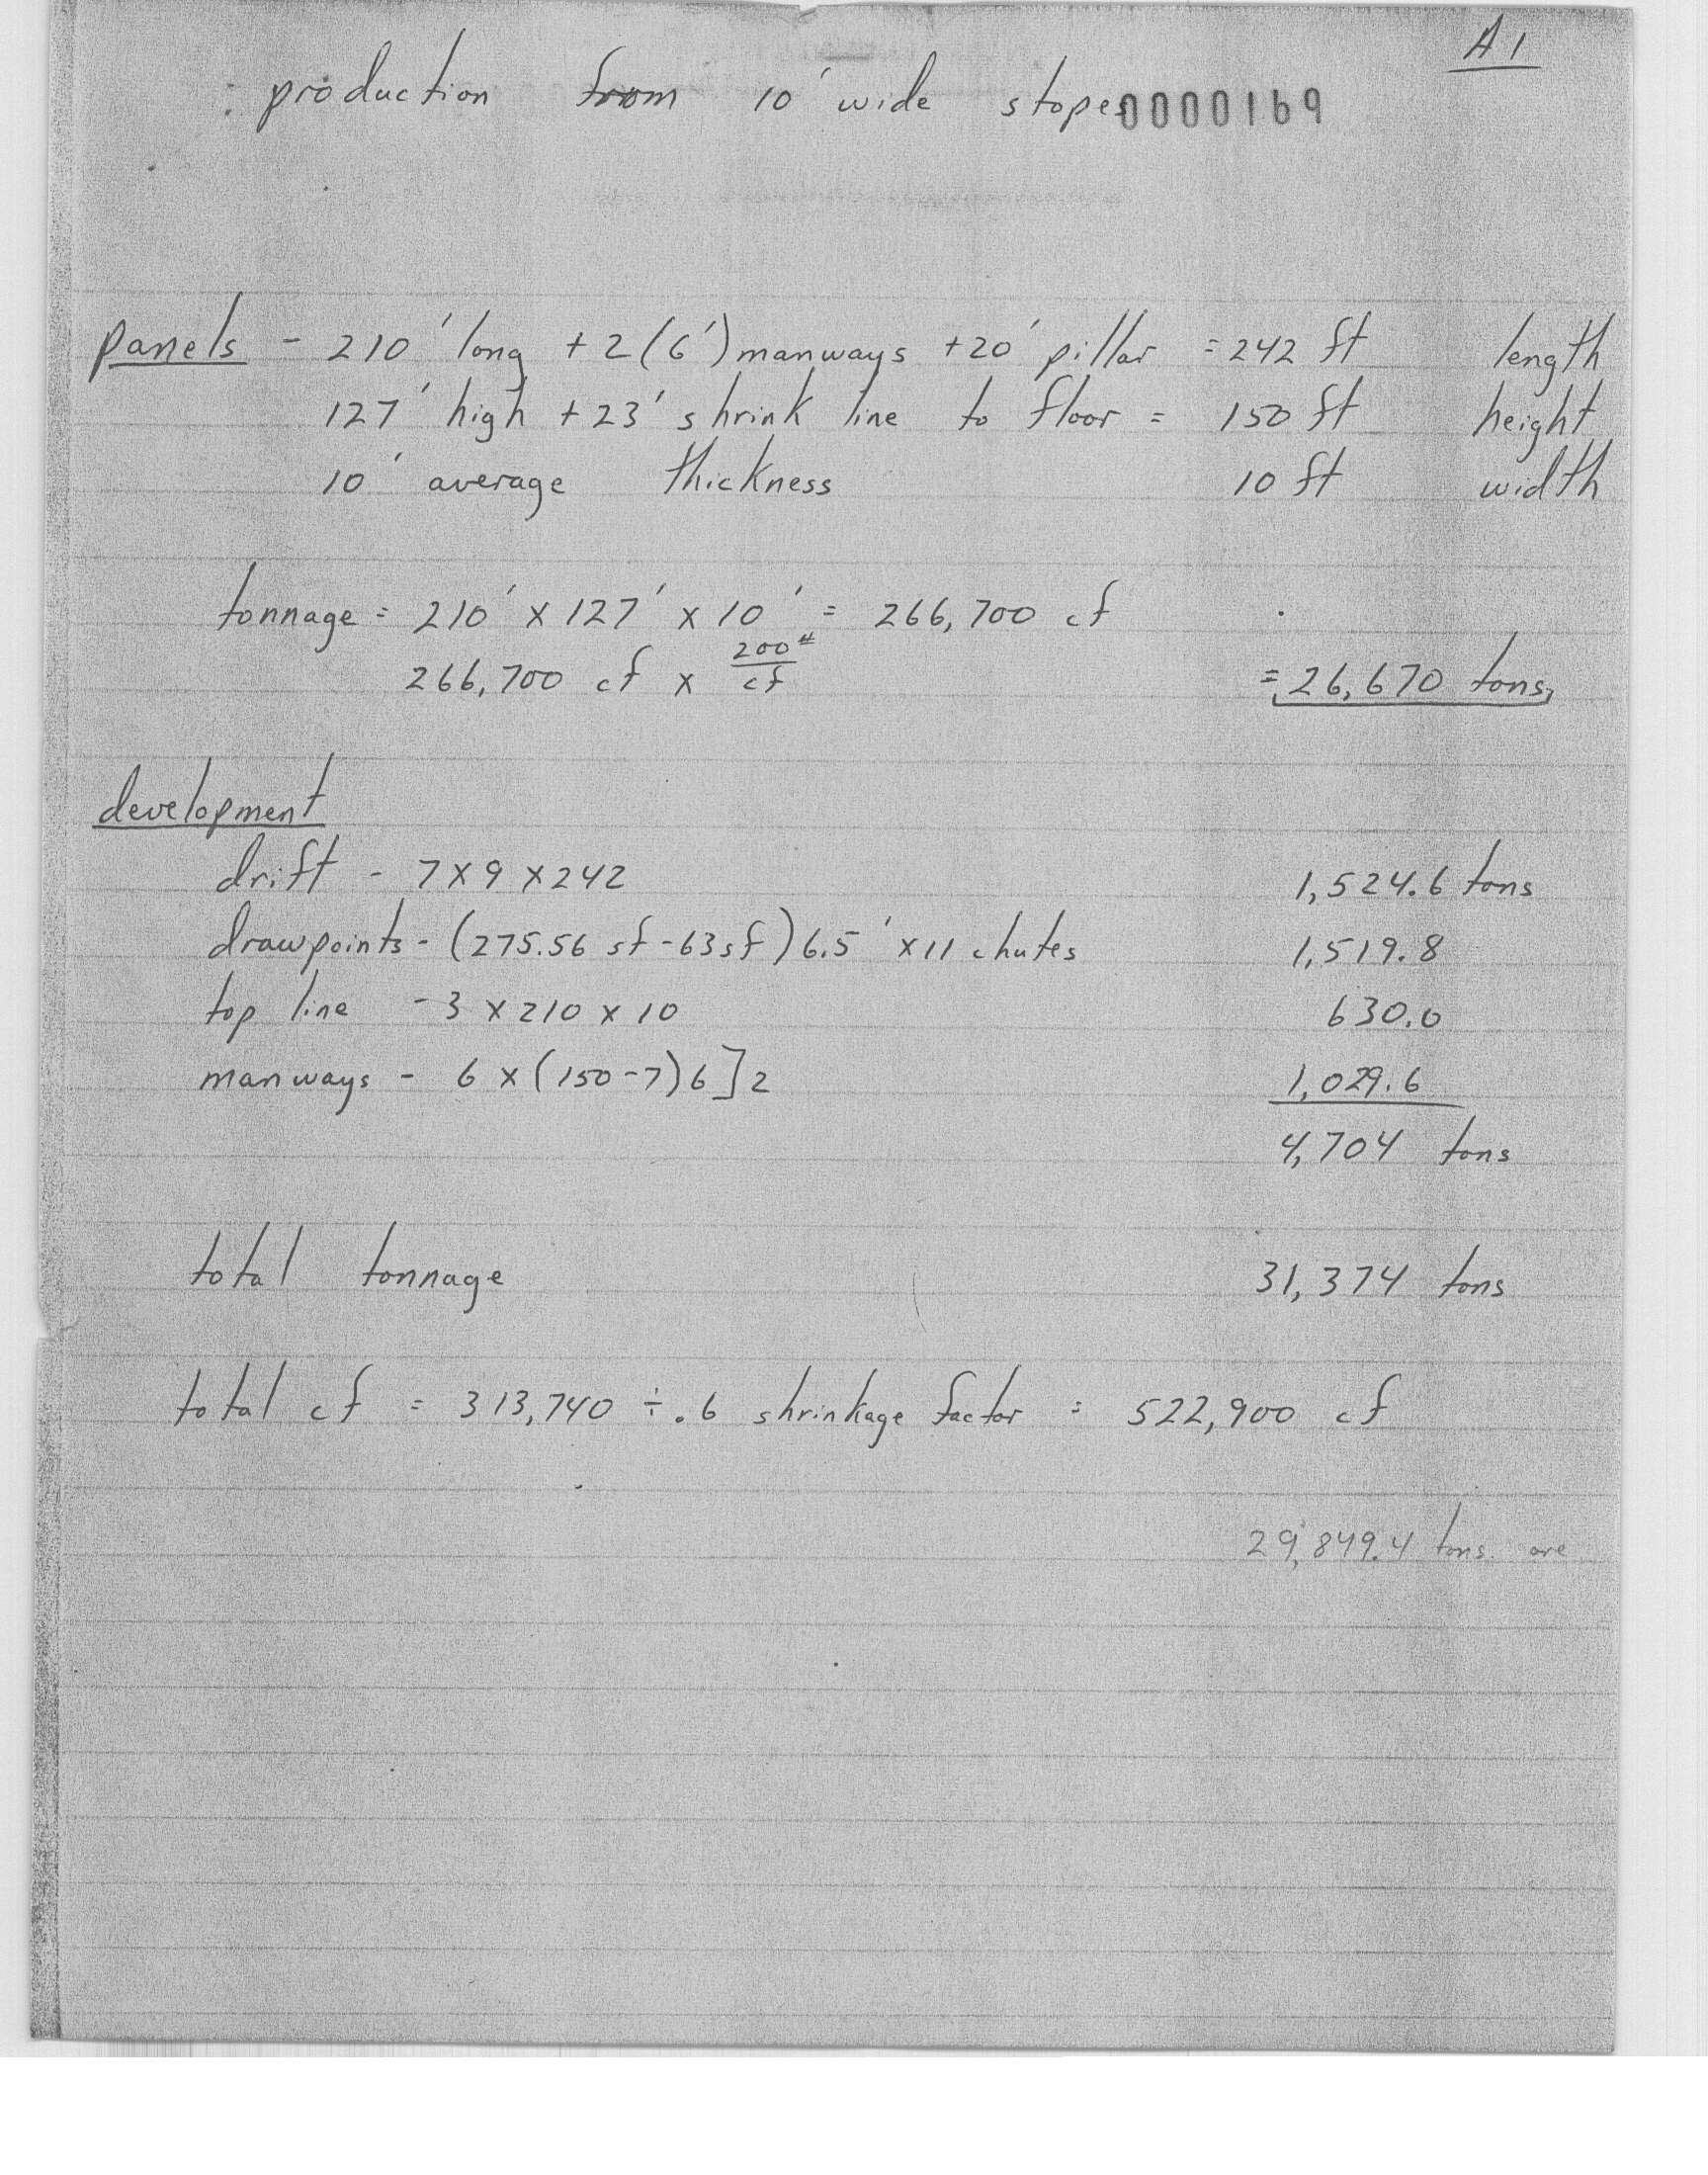 A1
: production from 10' wide stopes 0000169
panels - 210' long + 2(6') manways + 20' pillar = 242 ft length
127' high + 23' shrink line to floor = 150 ft height
10' average thickness 10 ft width
tonnage = 210' x 127' x 10' = 266,700 cf
266,700 cf x 200#/cf = 26,670 tons
development
drift - 7 x 9 x 242 1,524.6 tons
drawpoints - (275.56 sf - 63 sf) 6.5' x 11 chutes 1,519.8
top line - 3 x 210 x 10 630.0
manways - 6 x (150-7)6]2 1,029.6
4,704 tons
total tonnage 31,374 tons
total cf = 313,740 ÷ .6 shrinkage factor = 522,900 cf
29,849.4 tons ore